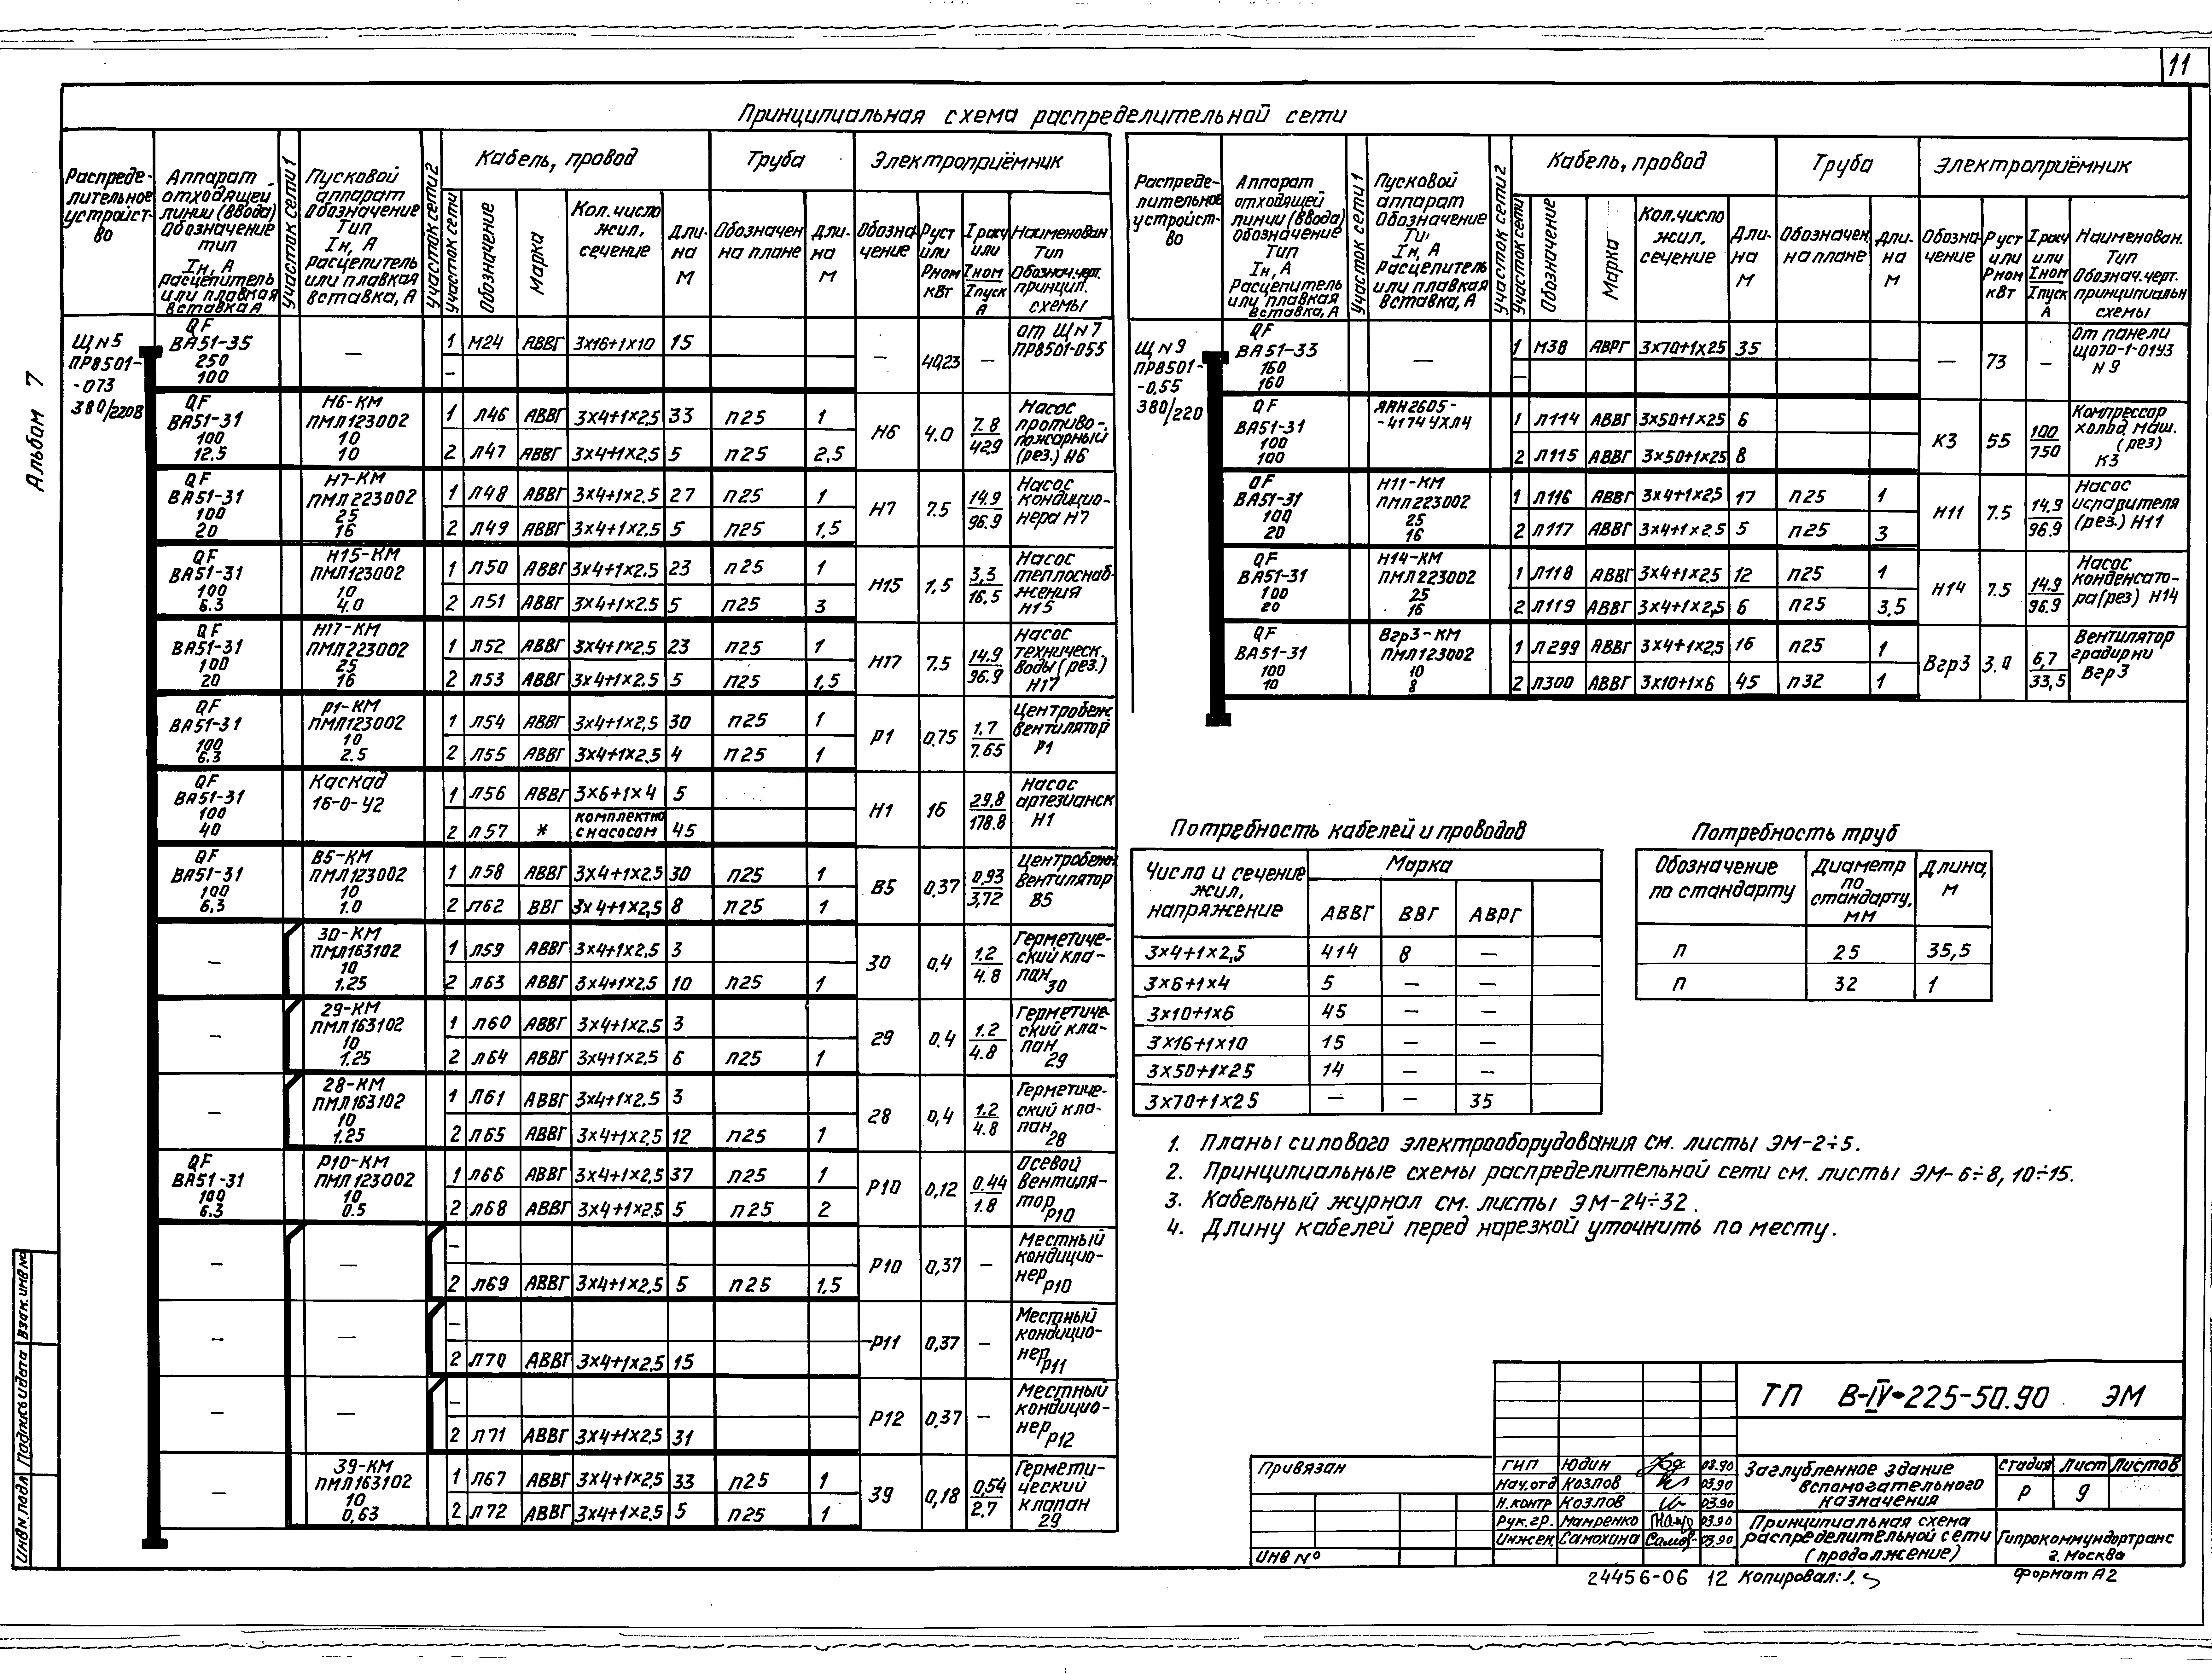 11
Альбом 7
Принципиальная схема распределительной сети
Распреде-
лительное
устройст-
во
Аппарат
отходящей
линии (ввода)
Обозначение
тип
Iн, А
Расцепитель
или плавкая
вставка А
Участок сети 1
Пусковой
аппарат
Обозначение
Тип
Iн, А
Расцепитель
или плавкая
вставка, А
Участок сети 2
Кабель, провод
Участок сети
Обозначение
Марка
Кол. число
жил,
сечение
Дли-
на
м
Труба
Обозначен.
на плане
Дли-
на
м
Электроприёмник
Обозна-
чение
Руст
или
Рном
кВт
Iрасч
или
Iном
Iпуск
А
Наименован
Тип
Обознач. черт.
принцип.
схемы
ЩN5
ПР8501-
-073
380/220В
QF ВА51-35 250 100 — 1 М24 АВВГ 3×16+1×10 15 — 40,23 — от ЩN7 ПР8501-055
—
QF ВА51-31 100 12.5 Н6-КМ ПМЛ123002 10 10 1 Л46 АВВГ 3×4+1×2,5 33 П25 1 Н6 4.0 7.8/42.9 Насос противо-пожарный (рез.) Н6
2 Л47 АВВГ 3×4+1×2,5 5 П25 2,5
QF ВА51-31 100 20 Н7-КМ ПМЛ223002 25 16 1 Л48 АВВГ 3×4+1×2.5 27 П25 1 Н7 7.5 14.9/96.9 Насос кондицио-нера Н7
2 Л49 АВВГ 3×4+1×2.5 5 П25 1,5
QF ВА51-31 100 6.3 Н15-КМ ПМЛ123002 10 4.0 1 Л50 АВВГ 3×4+1×2.5 23 П25 1 Н15 1,5 3,3/16,5 Насос теплоснаб-жения Н15
2 Л51 АВВГ 3×4+1×2.5 5 П25 3
QF ВА51-31 100 20 Н17-КМ ПМЛ223002 25 16 1 Л52 АВВГ 3×4+1×2,5 23 П25 1 Н17 7.5 14.9/96.9 Насос техническ. воды (рез.) Н17
2 Л53 АВВГ 3×4+1×2.5 5 П25 1,5
QF ВА51-31 100 6.3 Р1-КМ ПМЛ123002 10 2.5 1 Л54 АВВГ 3×4+1×2,5 30 П25 1 Р1 0,75 1,7/7.65 Центробеж вентилятор Р1
2 Л55 АВВГ 3×4+1×2,5 4 П25 1
QF ВА51-31 100 40 Каскад 16-0-У2 1 Л56 АВВГ 3×6+1×4 5 Н1 16 29,8/178.8 Насос артезианск Н1
2 Л57 * комплектно с насосом 45
QF ВА51-31 100 6,3 В5-КМ ПМЛ123002 10 1.0 1 Л58 АВВГ 3×4+1×2,5 30 П25 1 В5 0,37 0,93/3,72 Центробежн вентилятор В5
2 Л62 ВВГ 3×4+1×2,5 8 П25 1
— 30-КМ ПМЛ163102 10 1.25 1 Л59 АВВГ 3×4+1×2,5 3 30 0,4 1.2/4.8 Герметиче-ский кла-пан 30
2 Л63 АВВГ 3×4+1×2.5 10 П25 1
— 29-КМ ПМЛ163102 10 1.25 1 Л60 АВВГ 3×4+1×2.5 3 29 0.4 1.2/4.8 Герметиче-ский кла-пан 29
2 Л64 АВВГ 3×4+1×2,5 6 П25 1
— 28-КМ ПМЛ163102 10 1.25 1 Л61 АВВГ 3×4+1×2.5 3 28 0,4 1.2/4.8 Герметиче-ский кла-пан 28
2 Л65 АВВГ 3×4+1×2,5 12 П25 1
QF ВА51-31 100 6,3 Р10-КМ ПМЛ123002 10 0.5 1 Л66 АВВГ 3×4+1×2,5 37 П25 1 Р10 0,12 0.44/1.8 Осевой вентиля-тор Р10
2 Л68 АВВГ 3×4+1×2,5 5 П25 2
— — — Р10 0,37 — Местный кондицио-нер Р10
2 Л69 АВВГ 3×4+1×2,5 5 П25 1,5
— — — Р11 0,37 — Местный кондицио-нер Р11
2 Л70 АВВГ 3×4+1×2.5 15
— — — Р12 0,37 — Местный кондицио-нер Р12
2 Л71 АВВГ 3×4+1×2,5 31
— 39-КМ ПМЛ163102 10 0,63 1 Л67 АВВГ 3×4+1×2.5 33 П25 1 39 0,18 0,54/2,7 Гермети-ческий клапан 29
2 Л72 АВВГ 3×4+1×2.5 5 П25 1
Распреде-
лительное
устройст-
во
Аппарат
отходящей
линии (ввода)
Обозначение
Тип
Iн, А
Расцепитель
или плавкая
вставка, А
Участок сети 1
Пусковой
аппарат
Обозначение
Тип
Iн, А
Расцепитель
или плавкая
вставка, А
Участок сети 2
Кабель, провод
Участок сети
Обозначение
Марка
Кол. число
жил,
сечение
Дли-
на
м
Труба
Обозначен.
на плане
Дли-
на
м
Электроприёмник
Обозна-
чение
Руст
или
Рном
кВт
Iрасч
или
Iном
Iпуск
А
Наименован.
Тип
Обознач. черт.
принципиальн
схемы
ЩN9
ПР8501-
-0,55
380/220
QF ВА51-33 160 160 — 1 М38 АВРГ 3×70+1×25 35 — 73 — От панели ЩО70-1-01У3 N9
—
QF ВА51-31 100 100 ЯАН2605-4174УХЛ4 1 Л114 АВВГ 3×50+1×25 6 К3 55 100/750 Компрессор холод маш. (рез) К3
2 Л115 АВВГ 3×50+1×25 8
QF ВА51-31 100 20 Н11-КМ ПМЛ223002 25 16 1 Л116 АВВГ 3×4+1×2,5 17 П25 1 Н11 7.5 14,9/96.9 Насос испарителя (рез.) Н11
2 Л117 АВВГ 3×4+1×2.5 5 П25 3
QF ВА51-31 100 20 Н14-КМ ПМЛ223002 25 16 1 Л118 АВВГ 3×4+1×2,5 12 П25 1 Н14 7.5 14.9/96.9 Насос конденсато-ра (рез) Н14
2 Л119 АВВГ 3×4+1×2,5 6 П25 3,5
QF ВА51-31 100 10 Вгр3-КМ ПМЛ123002 10 8 1 Л299 АВВГ 3×4+1×2,5 16 П25 1 Вгр3 3.0 6,7/33,5 Вентилятор градирни Вгр3
2 Л300 АВВГ 3×10+1×6 45 П32 1
Потребность кабелей и проводов
Число и сечение
жил,
напряжение
Марка
АВВГ ВВГ АВРГ
3×4+1×2,5 414 8 —
3×6+1×4 5 — —
3×10+1×6 45 — —
3×16+1×10 15 — —
3×50+1×25 14 — —
3×70+1×25 — — 35
Потребность труб
Обозначение
по стандарту
Диаметр
по
стандарту,
мм
Длина,
м
П 25 35,5
П 32 1
1. Планы силового электрооборудования см. листы ЭМ-2÷5.
2. Принципиальные схемы распределительной сети см. листы ЭМ-6÷8, 10÷15.
3. Кабельный журнал см. листы ЭМ-24÷32.
4. Длину кабелей перед нарезкой уточнить по месту.
ТП В-IV-225-50.90 ЭМ
Привязан
ИНВ №
ГИП Юдин 08.90
Нач.отд Козлов 03.90
Н.контр Козлов 03.90
Рук.гр. Мамренко 03.90
Инжен. Самохина 03.90
Заглубленное здание
вспомогательного
назначения
Стадия Лист Листов
Р 9
Принципиальная схема
распределительной сети
(продолжение)
Гипрокоммундортранс
г. Москва
24456-06 12 Копировал:
формат А2
Инв№ подл Подпись и дата Взам. инв№